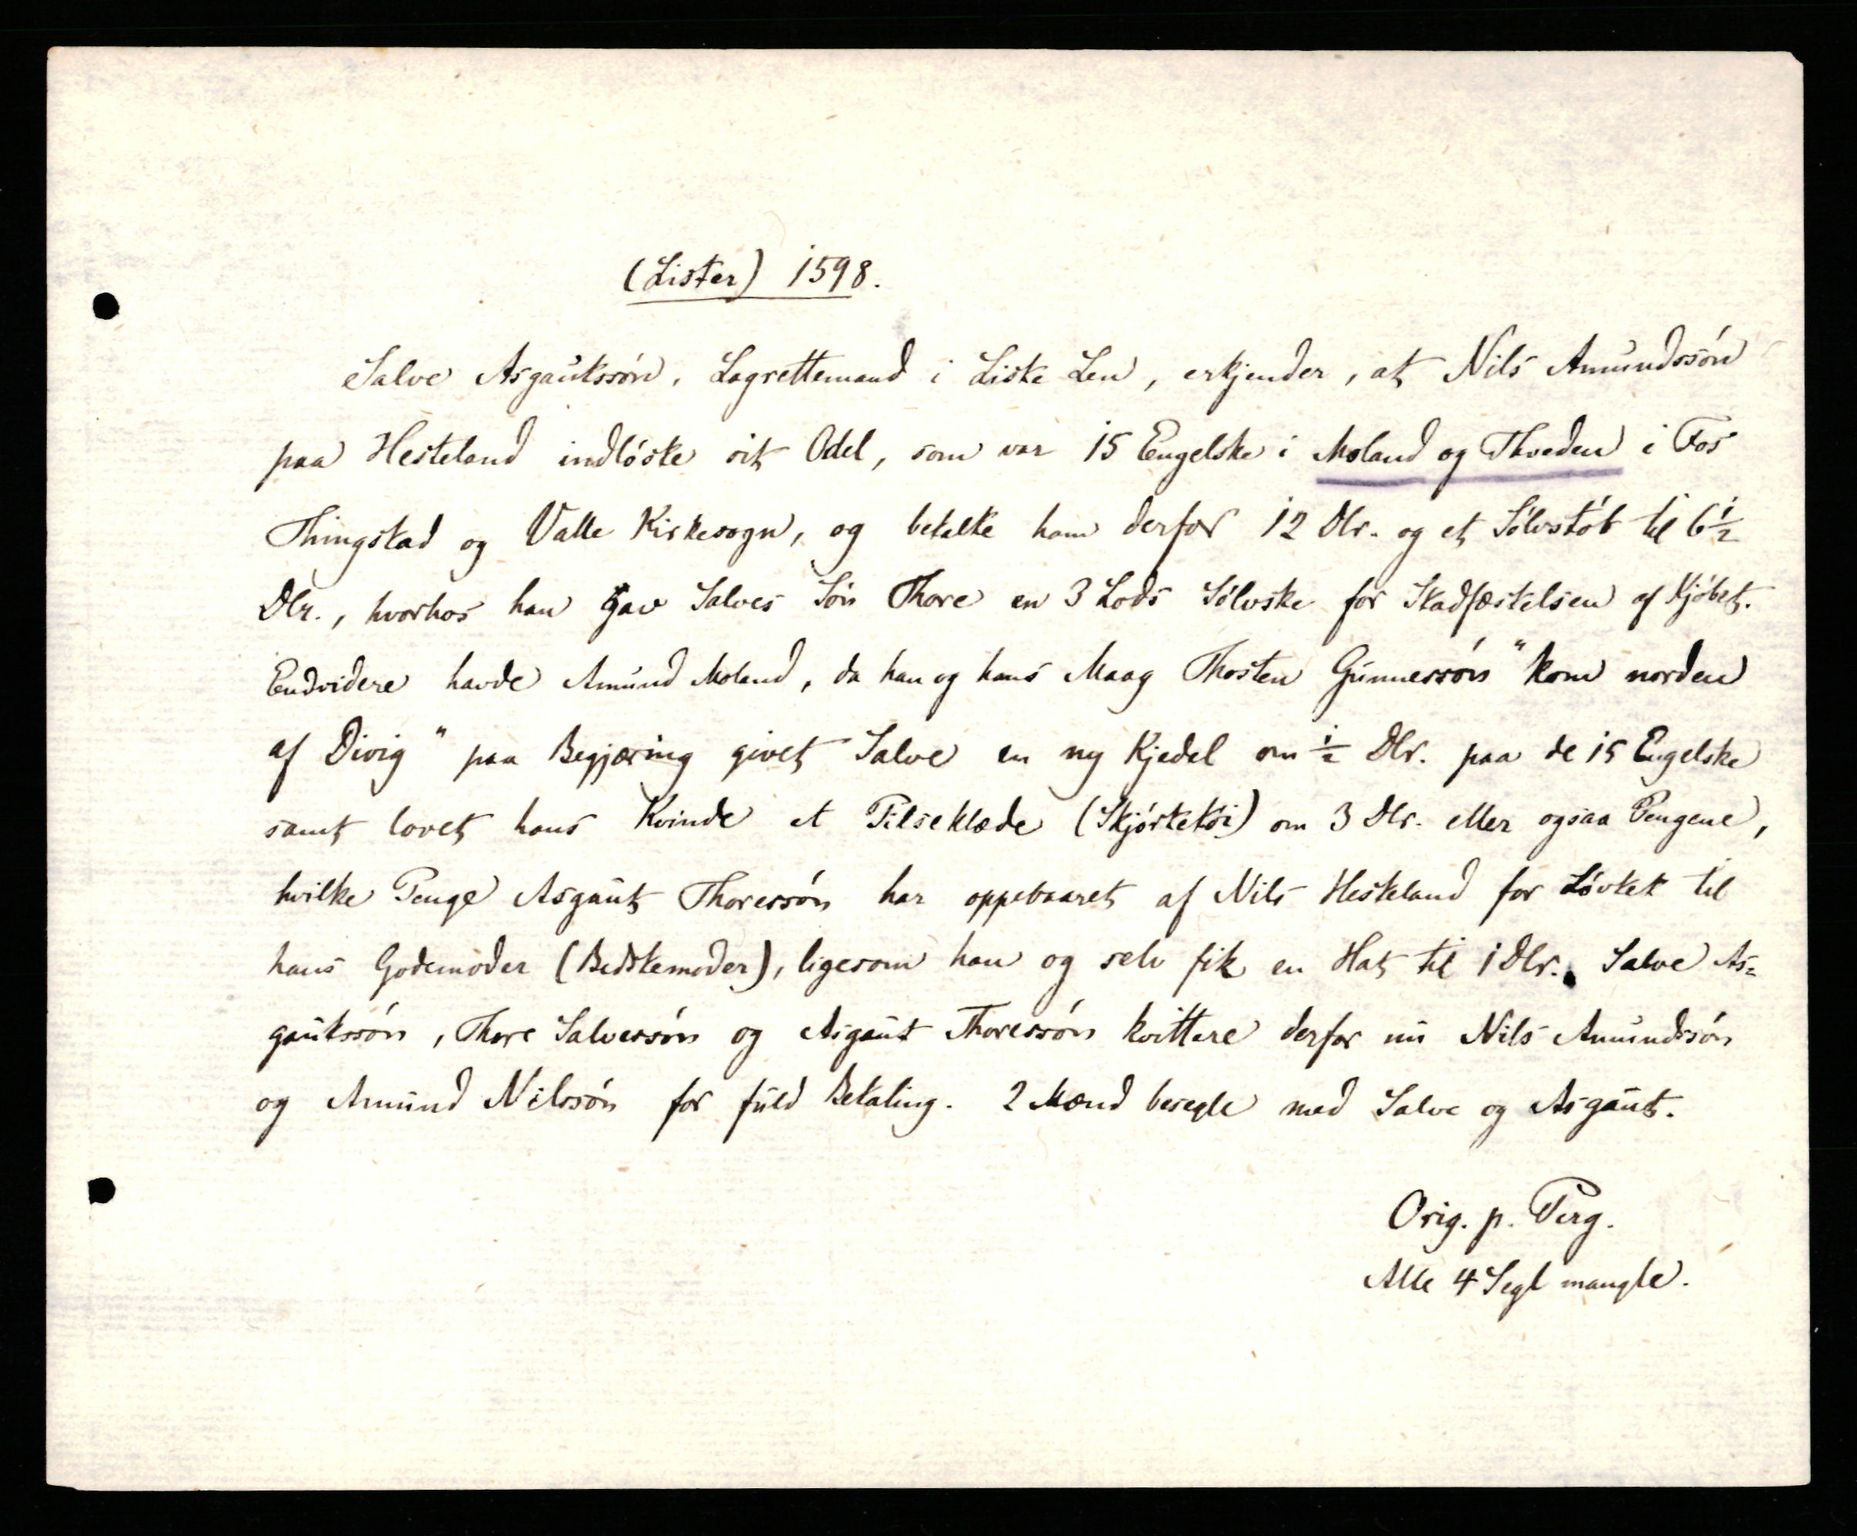 (Lister) 1598.
Salve Asgautssón, Lagrettemand i Liste Len, erkjender, at Nils Amundssón
paa Hesteland indlóste sit Odel, som var 15 Engelske i Moland og Thveden i Fos
Thingstad og Valle Kirkesogn, og betalte ham derfor 12 Dlr. og et Sólvstób til 6½
Dlr., hvorhos han gav Salves Són Thore en 3 Lods Sólvske for Stadfæstelsen af Kjóbet.
Endvidere havde Amund Moland, da han og hans Maag Thosten Gunnerssón "kom norden
af Divig" paa Begjæring givet Salve en ny Kjedel om ½ Dlr. paa de 15 Engelske
samt lovet hans Kvinde et Pilseklæde (Skjórtetói) om 3 Dlr. eller ogsaa Pengene,
hvilke Penge Asgaut Thoressón har oppebaaret af Nils Hesteland for Lóvtet til
hans Godemoder (Bedstemoder), ligesom han og selv fik en Hat til 1 Dlr. Salve As=
gautssón, Thore Salvessón og Asgaut Thoressón kvittere derfor nu Nils Amundssón
og Amund Nilssón for fuld Betaling. 2 Mænd besegle med Salve og Asgaut.
Orig. p. Perg.
Alle 4 Segl mangle.